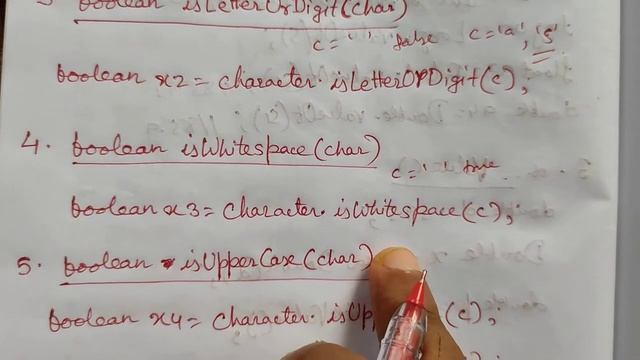 3 boolean isLetterOrDigit(char)
c=' ' false c='a','5'
boolean x2 = character.isLetterOrDigit(c);
4. boolean isWhitespace(char)
c=' ' true
boolean x3 = Character.isWhitespace(c);
5. boolean isUpperCase(char)
boolean x4 = Character.isUp (c);